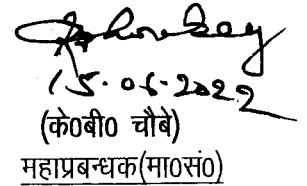 15.06.2022
(के0बी0 चौबे)
महाप्रबन्धक(मा0सं0)